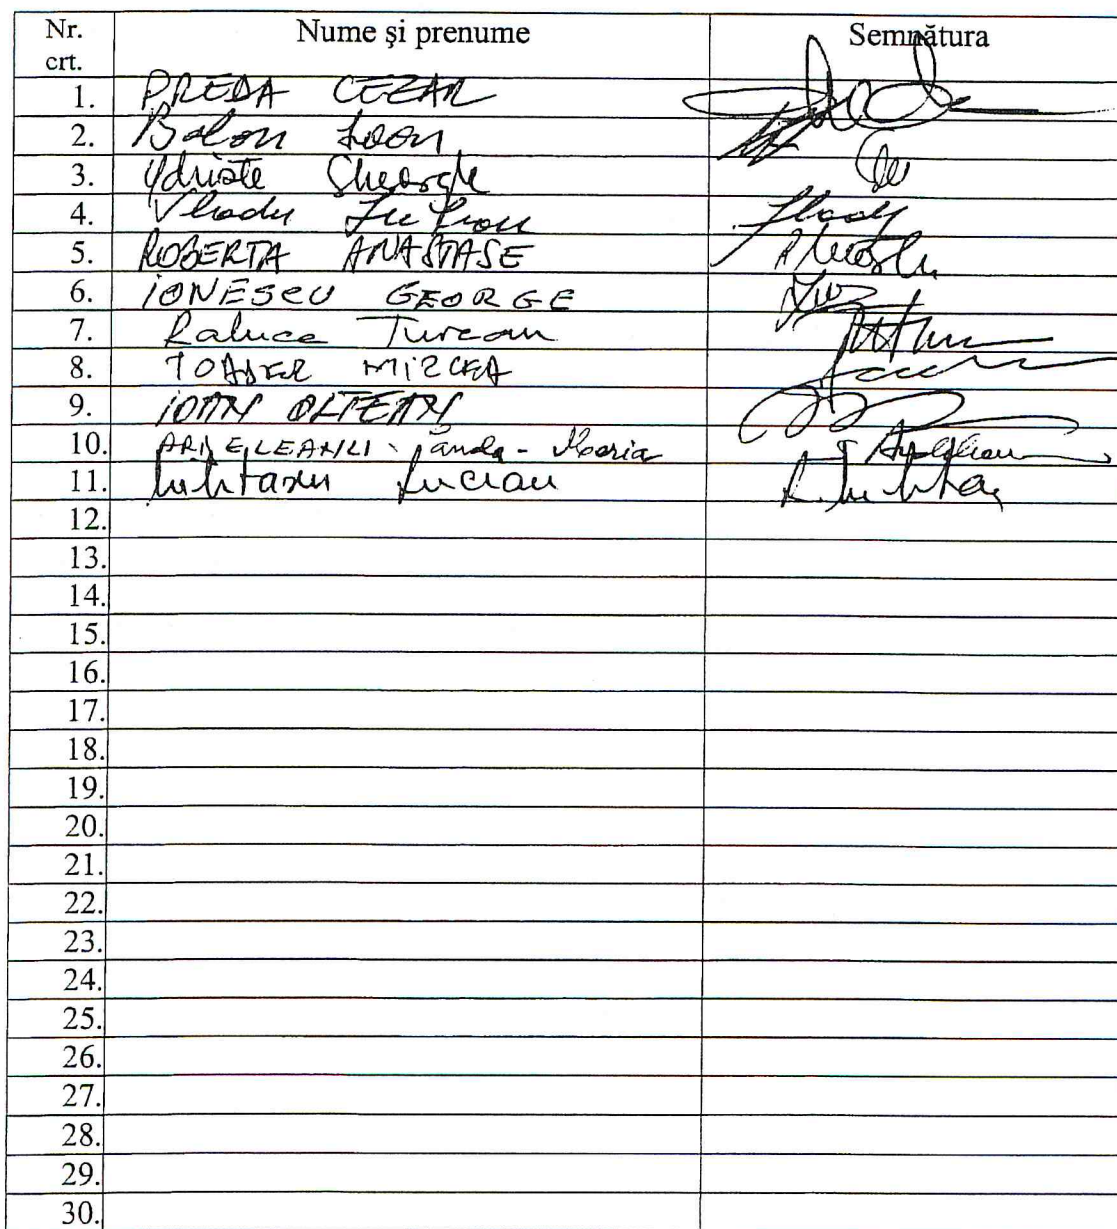 Nr. crt. Nume şi prenume Semnătura
1. PREDA CEZAR
2. Balan Ioan
3. Udriște Gheorghe
4. Vladu Iulian
5. ROBERTA ANASTASE
6. IONESCU GEORGE
7. Raluca Turcan
8. TOADER MIRCEA
9. IOAN OLTEAN
10. ARDELEANU Sanda-Maria
11. Militaru Lucian
12.
13.
14.
15.
16.
17.
18.
19.
20.
21.
22.
23.
24.
25.
26.
27.
28.
29.
30.